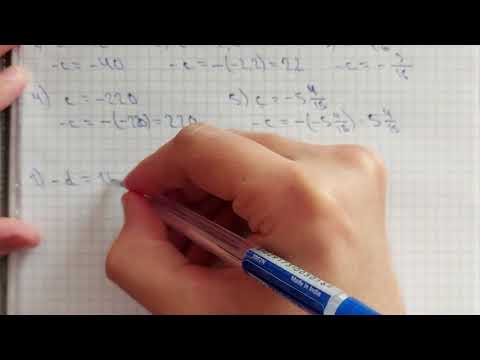 -c = -40 -c = -(-22) = 22 -c = -
4) c = -220 5) c = -5 4/15
-c = -(-220) = 220 -c = -(-5 4/15) = 5 4/15
1) -d = 1
Made in India